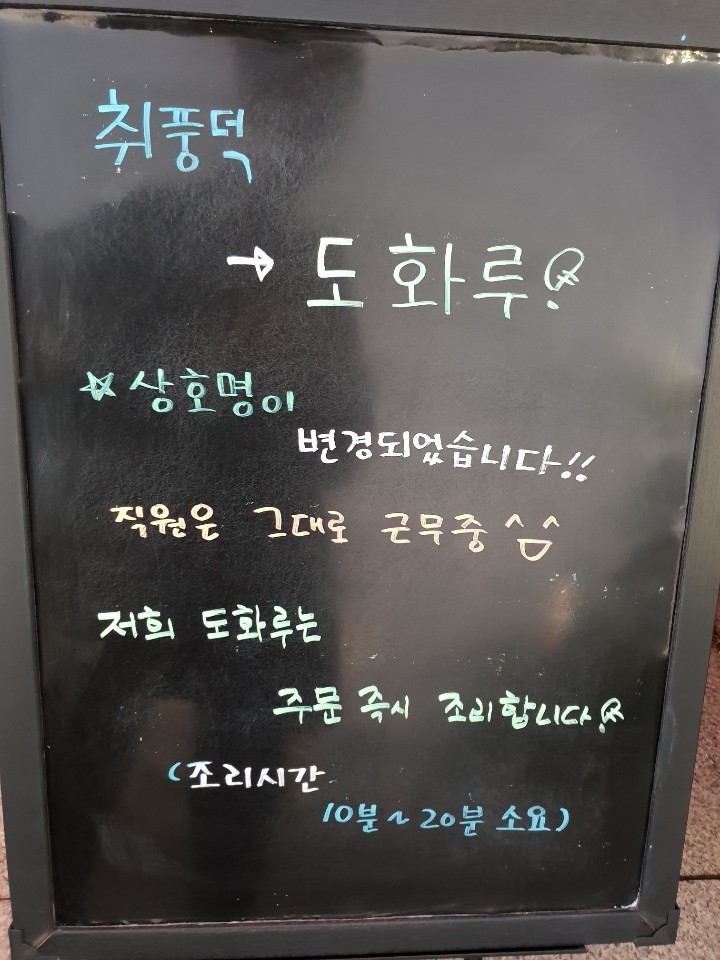 취풍덕
→ 도화루!
☆상호명이
변경되었습니다!!
직원은 그대로 근무중 ^^
저희 도화루는
주문 즉시 조리합니다!
(조리시간
10분~20분 소요)